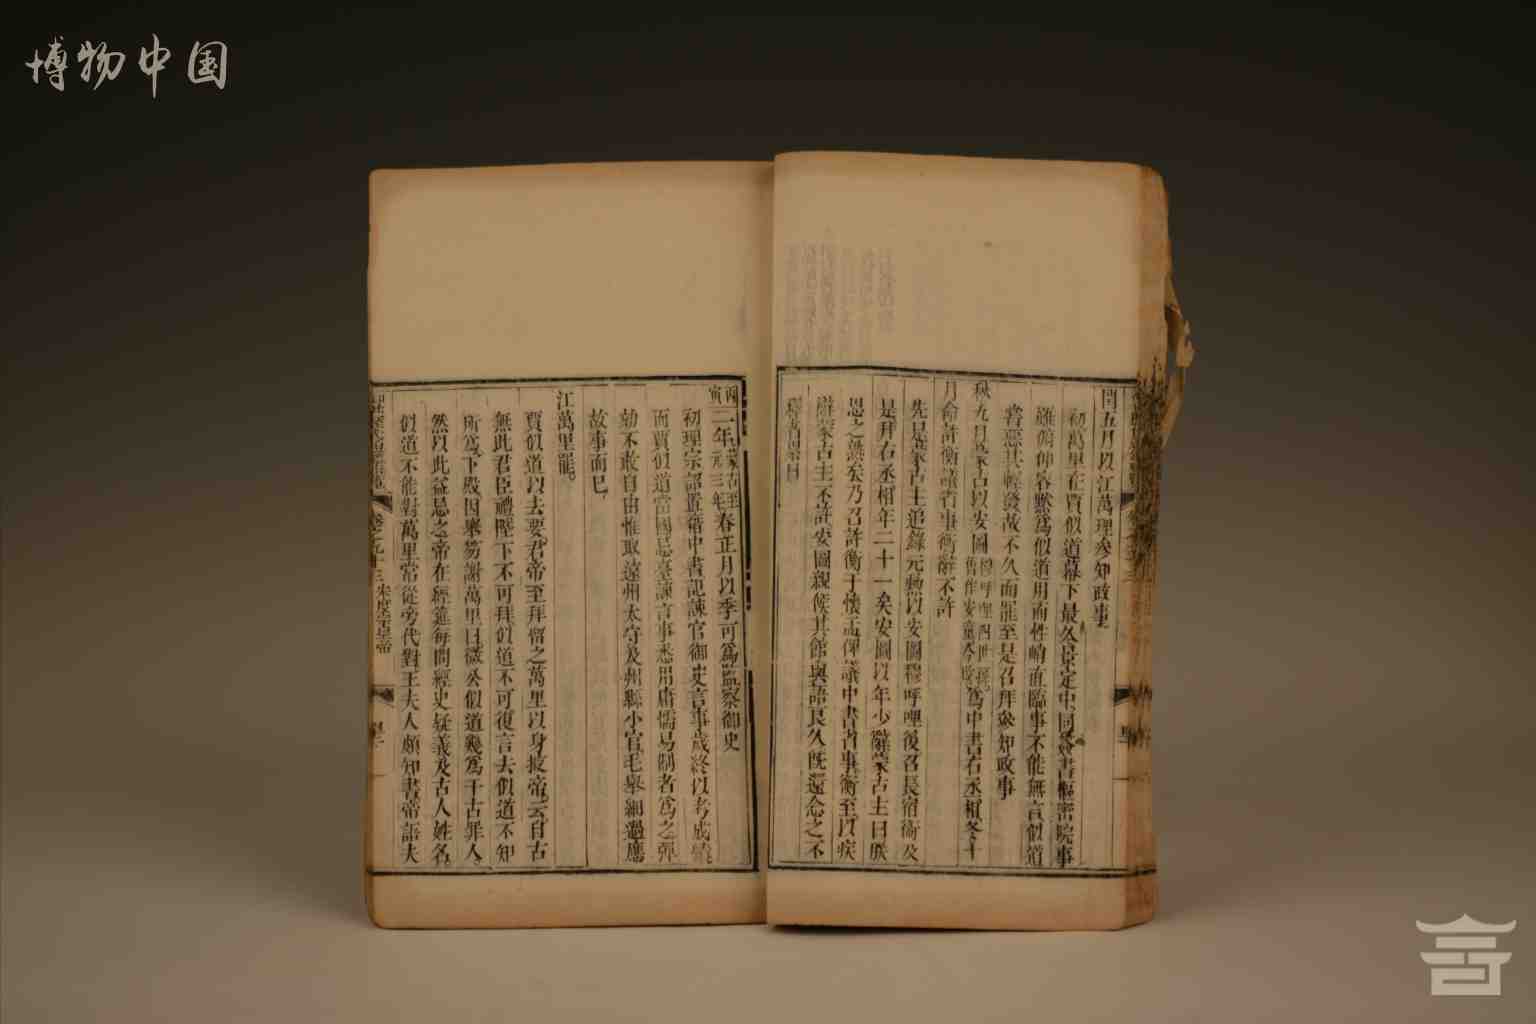 博物中国
閏五月以江萬理參知政事
初萬里在賈似道幕下最久景定中同僉書樞密院事
雖俯仰容默爲似道用而性峭直臨事不能無言似道
嘗惡其輕發故不久而罷至是召拜參知政事
秋九月蒙古以安圖穆呼哩四世孫舊作安童今改爲中書右丞相冬十
月命許衡議省事衡辭不許
先是蒙古主追錄元勲以安圖穆呼哩後召長宿衞及
是拜右丞相年二十一矣安圖以年少辭蒙古主曰朕
思之熟矣乃召許衡于懷孟俾議中書省事衡至以疾
辭蒙古主不許安圖親候其館與語良久旣還念之不
釋者累日
丙寅二年蒙古至元三年春正月以季可爲監察御史
初理宗詔置籍中書記諫官御史言事歲終以考成績
而賈似道當國忌臺諫言事悉用庸懦易制者爲之彈
劾不敢自由惟取遠州太守及州縣小官毛舉細過應
故事而已
江萬里罷
賈似道以去要君帝至拜留之萬里以身掖帝云自古
無此君臣禮陛下不可拜似道不可復言去似道不知
所爲下殿因舉笏謝萬里曰微公似道幾爲千古罪人
然以此益忌之帝在經筵每問經史疑義及古人姓名
似道不能對萬里常從旁代對王夫人頗知書帝語夫
卷之九十三 宋度宗皇帝